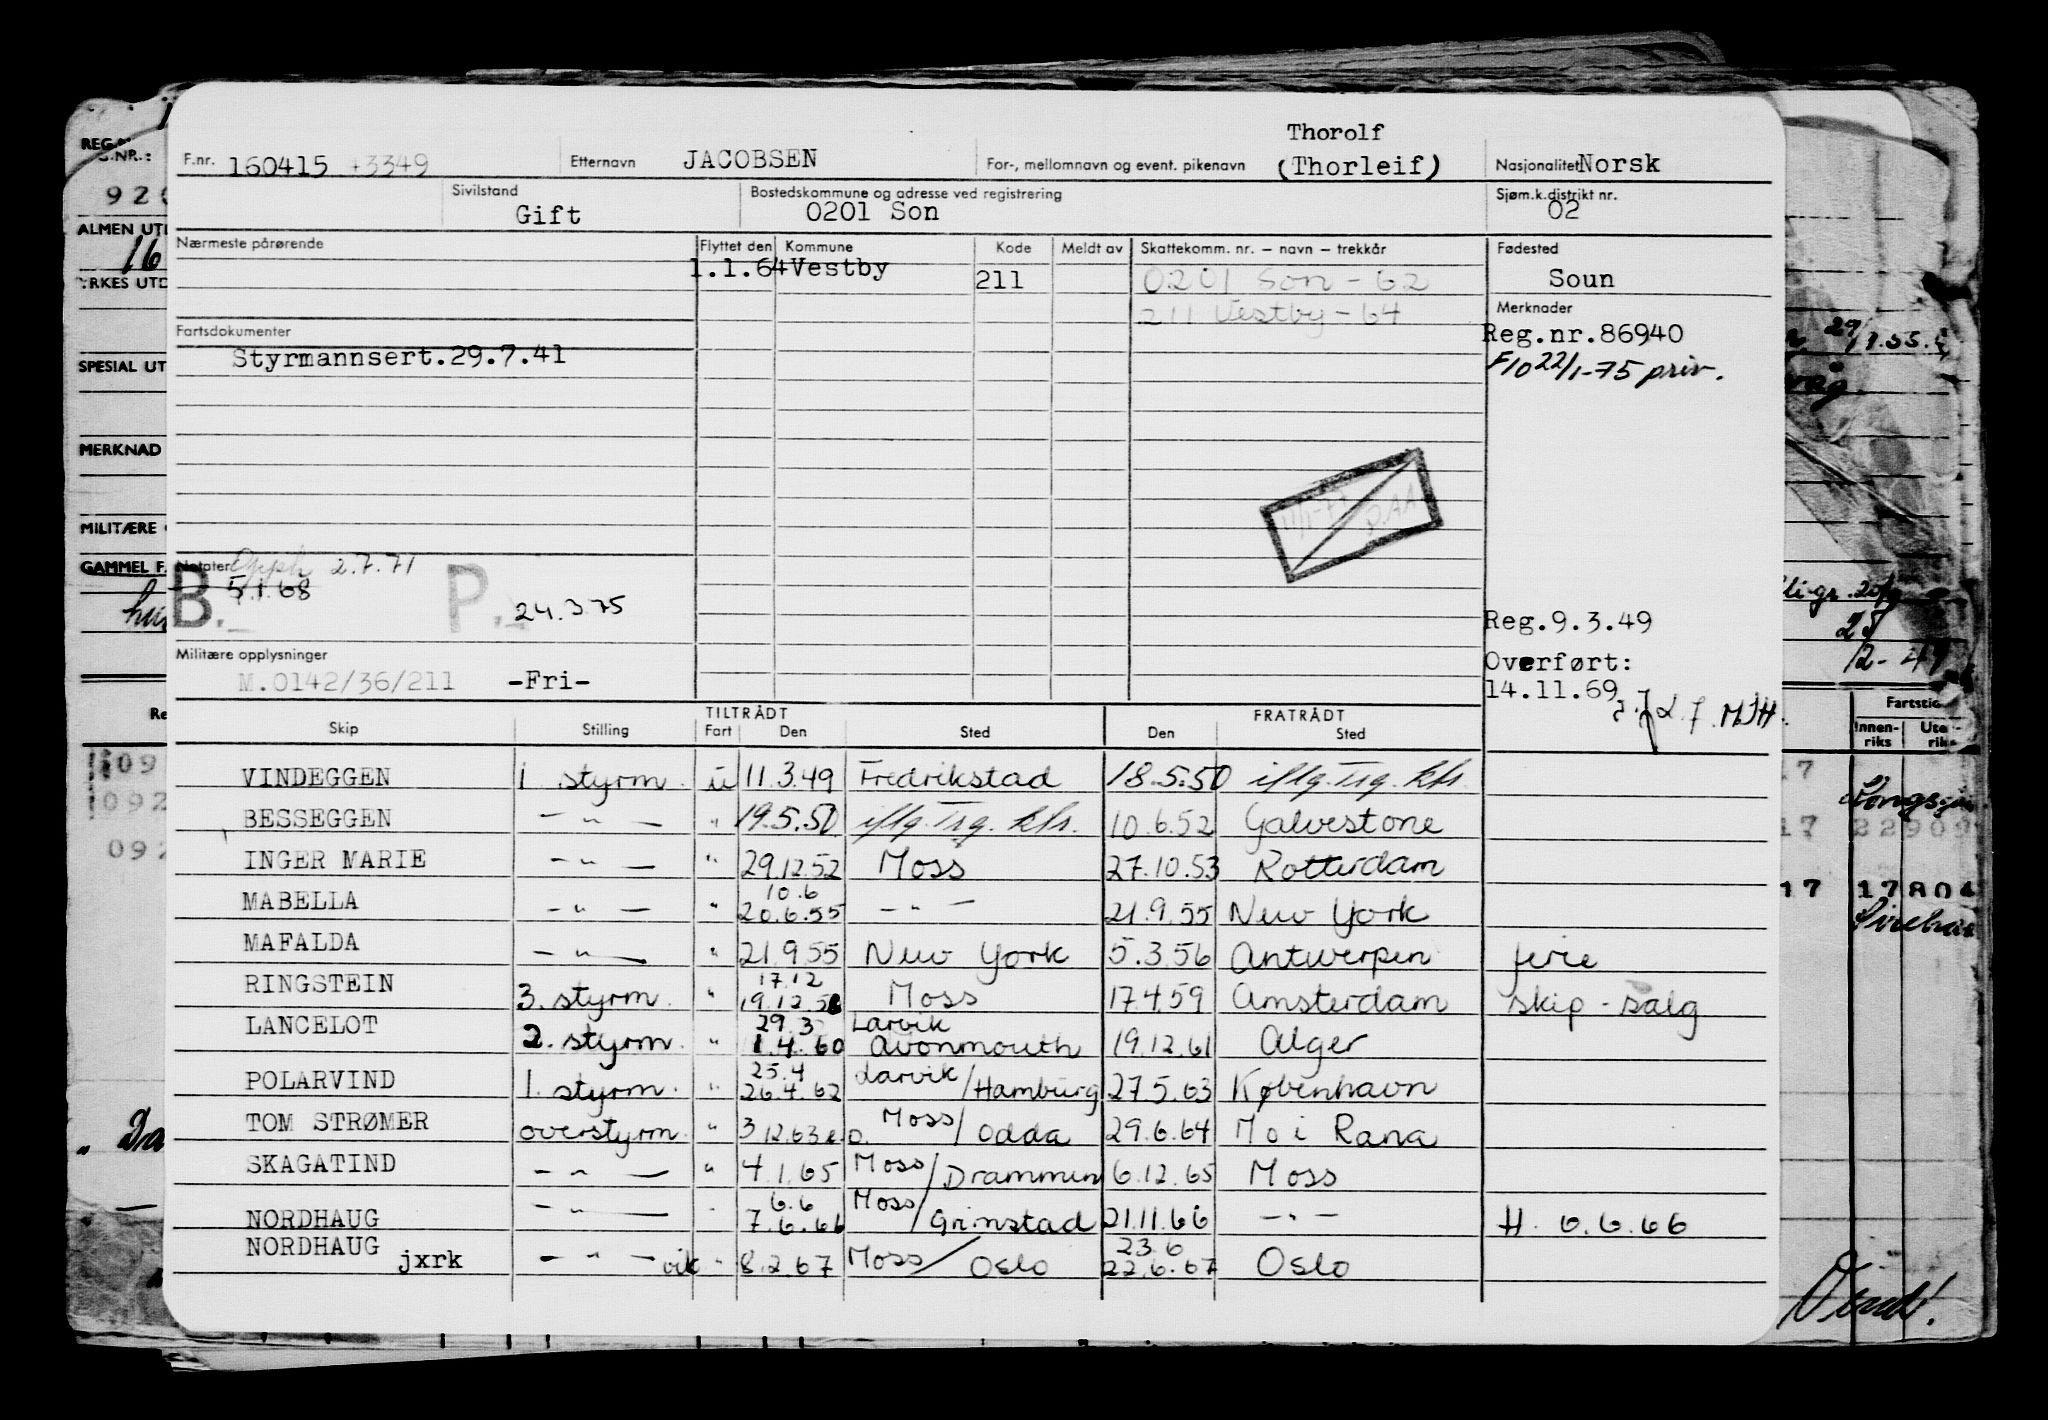 Thorolf
F.nr. 160415 43349 Etternavn JACOBSEN For-, mellomnavn og event. pikenavn (Thorleif) Nasjonalitet Norsk
Sivilstand Gift Bostedskommune og adresse ved registrering 0201 Son Sjøm.k.distrikt nr. 02
Nærmeste pårørende Flyttet den Kommune Kode Meldt av Skattekomm. nr. – navn – trekkår Fødested
1.1.64 Vestby 211 0201 Son - 62 Soun
211 Vestby - 64 Merknader
Fartsdokumenter Reg.nr.86940
Styrmannsert.29.7.41 F10 22/1-75 priv.
Notater 2.7.71
B. 5.1.68 P. 24.3.75
Reg.9.3.49
Militære opplysninger Overført:
M.0142/36/211 -Fri- 14.11.69
TILTRÅDT FRATRÅDT
Skip Stilling Fart Den Sted Den Sted
VINDEGGEN 1. styrm. u 11.3.49 Fredrikstad 18.5.50 iflg. Trg. kfr.
BESSEGGEN - " - " 19.5.50 iflg. Trg. kfr. 10.6.52 Galvestone
INGER MARIE - " - " 29.12.52 Moss 27.10.53 Rotterdam
MABELLA - " - " 10.6 20.6.55 - " - 21.9.55 New York
MAFALDA - " - " 21.9.55 New York 5.3.56 Antwerpen ferie
RINGSTEIN 3. styrm. " 17.12 19.12.58 Moss 17.4.59 Amsterdam skip-salg
LANCELOT 2. styrm. " 29.3 1.4.60 Larvik Avonmouth 19.12.61 Alger
POLARVIND 1. styrm. " 25.4 26.4.62 Larvik/Hamburg 27.5.63 København
TOM STRØMER overstyrm. " 3.12.63 Moss/Odda 29.6.64 Mo i Rana
SKAGATIND - " - " 4.1.65 Moss/Drammen 6.12.65 Moss
NORDHAUG - " - " 6.6 7.6.66 Moss/Grimstad 21.11.66 - " - H. 6.6.66
NORDHAUG jxrk - " - vik " 8.2.67 Moss/Oslo 23.6 22.6.67 Oslo
REG.N
G.NR.:
920
ALMEN UT
16
YRKES UTD
SPECIAL UT
MERKNAD
MILITÆRE
GAMMEL F
Re
09
092
092
12-49
Fartstid
Innenriks Uteriks
17
17 22909
17 17804